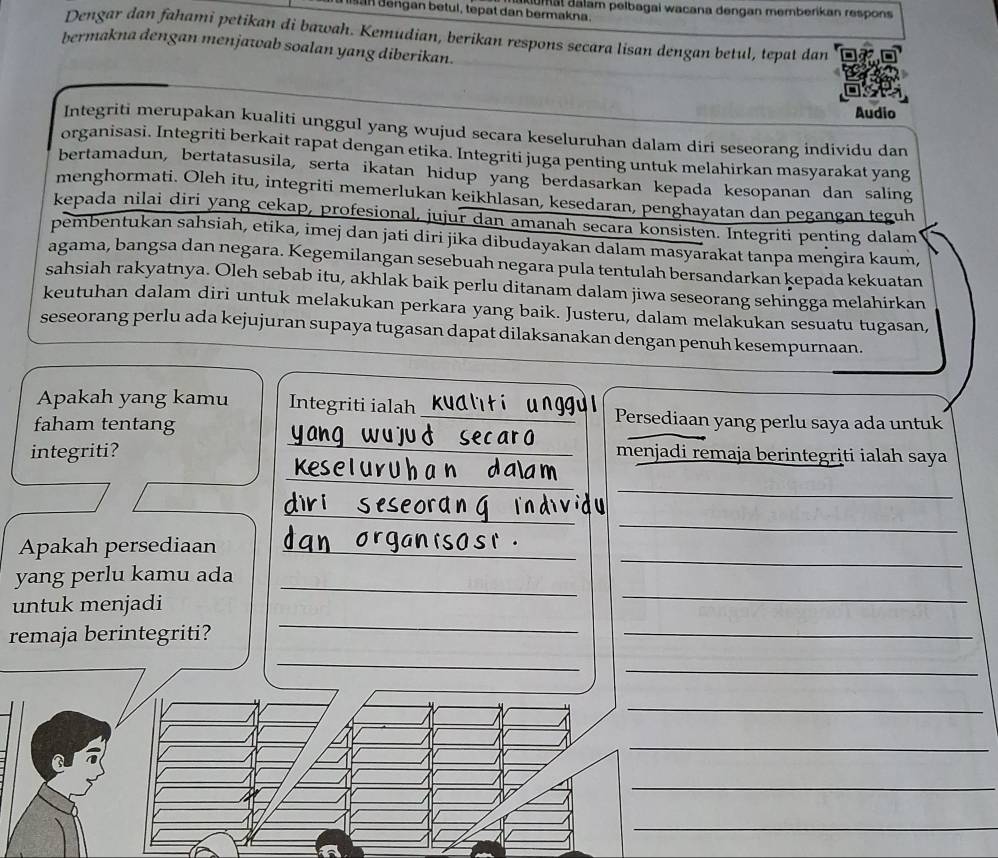 dalam pelbagai wacana dengan memberikan respons
dengan betul, tepat dan bermakna.
Dengar dan fahami petikan di bawah. Kemudian, berikan respons secara lisan dengan betul, tepat dan
bermakna dengan menjawab soalan yang diberikan.
Audio
Integriti merupakan kualiti unggul yang wujud secara keseluruhan dalam diri seseorang individu dan
organisasi. Integriti berkait rapat dengan etika. Integriti juga penting untuk melahirkan masyarakat yang
bertamadun, bertatasusila, serta ikatan hidup yang berdasarkan kepada kesopanan dan saling
menghormati. Oleh itu, integriti memerlukan keikhlasan, kesedaran, penghayatan dan pegangan teguh
kepada nilai diri yang cekap, profesional, jujur dan amanah secara konsisten. Integriti penting dalam
pembentukan sahsiah, etika, imej dan jati diri jika dibudayakan dalam masyarakat tanpa mengira kaum,
agama, bangsa dan negara. Kegemilangan sesebuah negara pula tentulah bersandarkan kepada kekuatan
sahsiah rakyatnya. Oleh sebab itu, akhlak baik perlu ditanam dalam jiwa seseorang sehingga melahirkan
keutuhan dalam diri untuk melakukan perkara yang baik. Justeru, dalam melakukan sesuatu tugasan,
seseorang perlu ada kejujuran supaya tugasan dapat dilaksanakan dengan penuh kesempurnaan.
Apakah yang kamu
faham tentang
integriti?
Apakah persediaan
yang perlu kamu ada
untuk menjadi
remaja berintegriti?
Integriti ialah kualiti unggul
yang wujud secara
keseluruhan dalam
diri seseorang individu
dan organisasi.
Persediaan yang perlu saya ada untuk
menjadi remaja berintegriti ialah saya